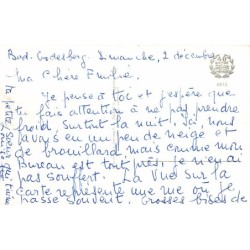 Bad-Godesberg. Dimanche, 2 décembre
Ma Chère Emilie.
Je pense à toi et j'espère que
tu fais attention à ne pas prendre
froid, surtout la nuit. Ici, nous
avons eu un peu de neige et
de brouillard mais comme mon
Bureau est tout près, je n'en ai
pas souffert. La vue sur la
carte représente une rue où je
passe souvent. Grosses bises de
ta petite soeur qui t'aime